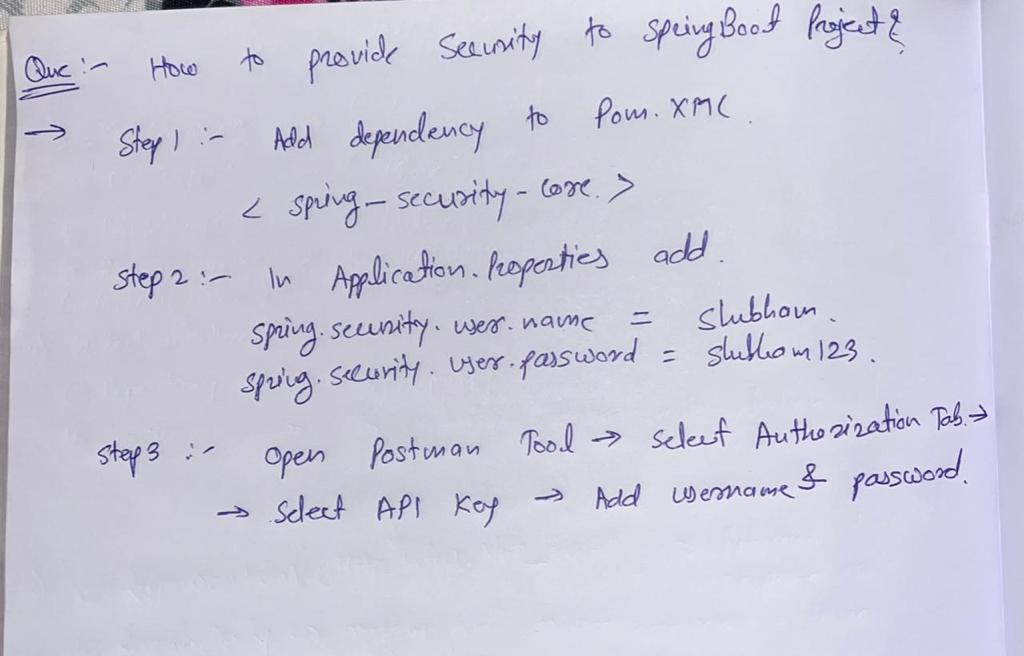 Que :- How to provide Security to SpringBoot Project?
→ Step 1 :- Add dependency to Pom.XML.
< spring-security-core. >
Step 2 :- In Application.Properties add.
spring.security.user.name = shubham.
spring.security.user.password = shubham123.
Step 3 :- Open Postman Tool → Select Authorization Tab. →
→ Select API Key → Add username & password.